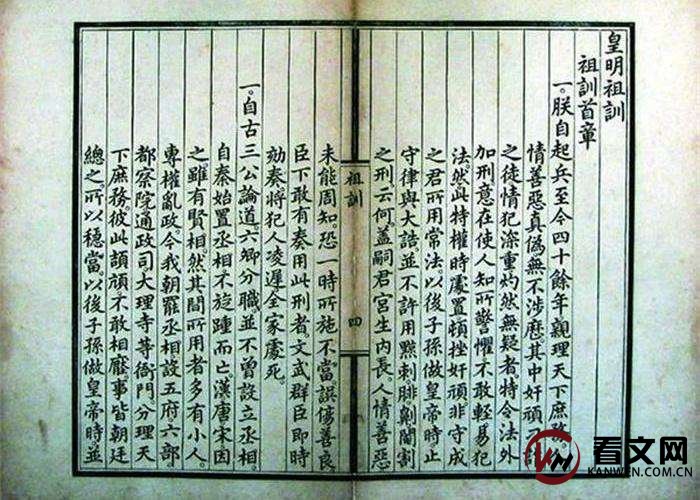 皇明祖訓
祖訓首章
一。朕自起兵至今四十餘年。親理天下庶務。人
情善惡真偽。無不涉歷。其中奸頑
之徒。情犯深重。灼然無疑者。特令法外
加刑。意在使人知所警懼。不敢輕易犯
法。然此特權時處置。頓挫奸頑。非守成
之君所用常法。以後子孫做皇帝時。止
守律與大誥。並不許用黥刺腓劓閹割
之刑。云何。蓋嗣君宮生內長。人情善惡
祖訓
四
未能周知。恐一時所施不當。誤傷善良。
臣下敢有奏用此刑者。文武群臣即時
劾奏。將犯人凌遲。全家處死。
一。自古三公論道。六卿分職。並不曾設立丞相。
自秦始置丞相。不旋踵而亡。漢唐宋因
之。雖有賢相。然其間所用者多有小人。
專權亂政。今我朝罷丞相。設五府六部。
都察院通政司。大理寺等衙門。分理天
下庶務。彼此頡頏。不敢相壓。事皆朝廷
總之。所以穩當。以後子孫做皇帝時。並
看文网
KANWEN.COM.CN